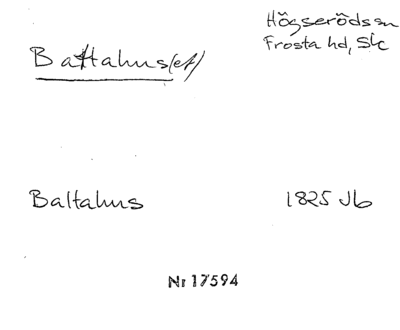 Högserödssn
Frosta hd, Sk
Battahus(et)
Baltahus 1825 Jb
Nr 17594